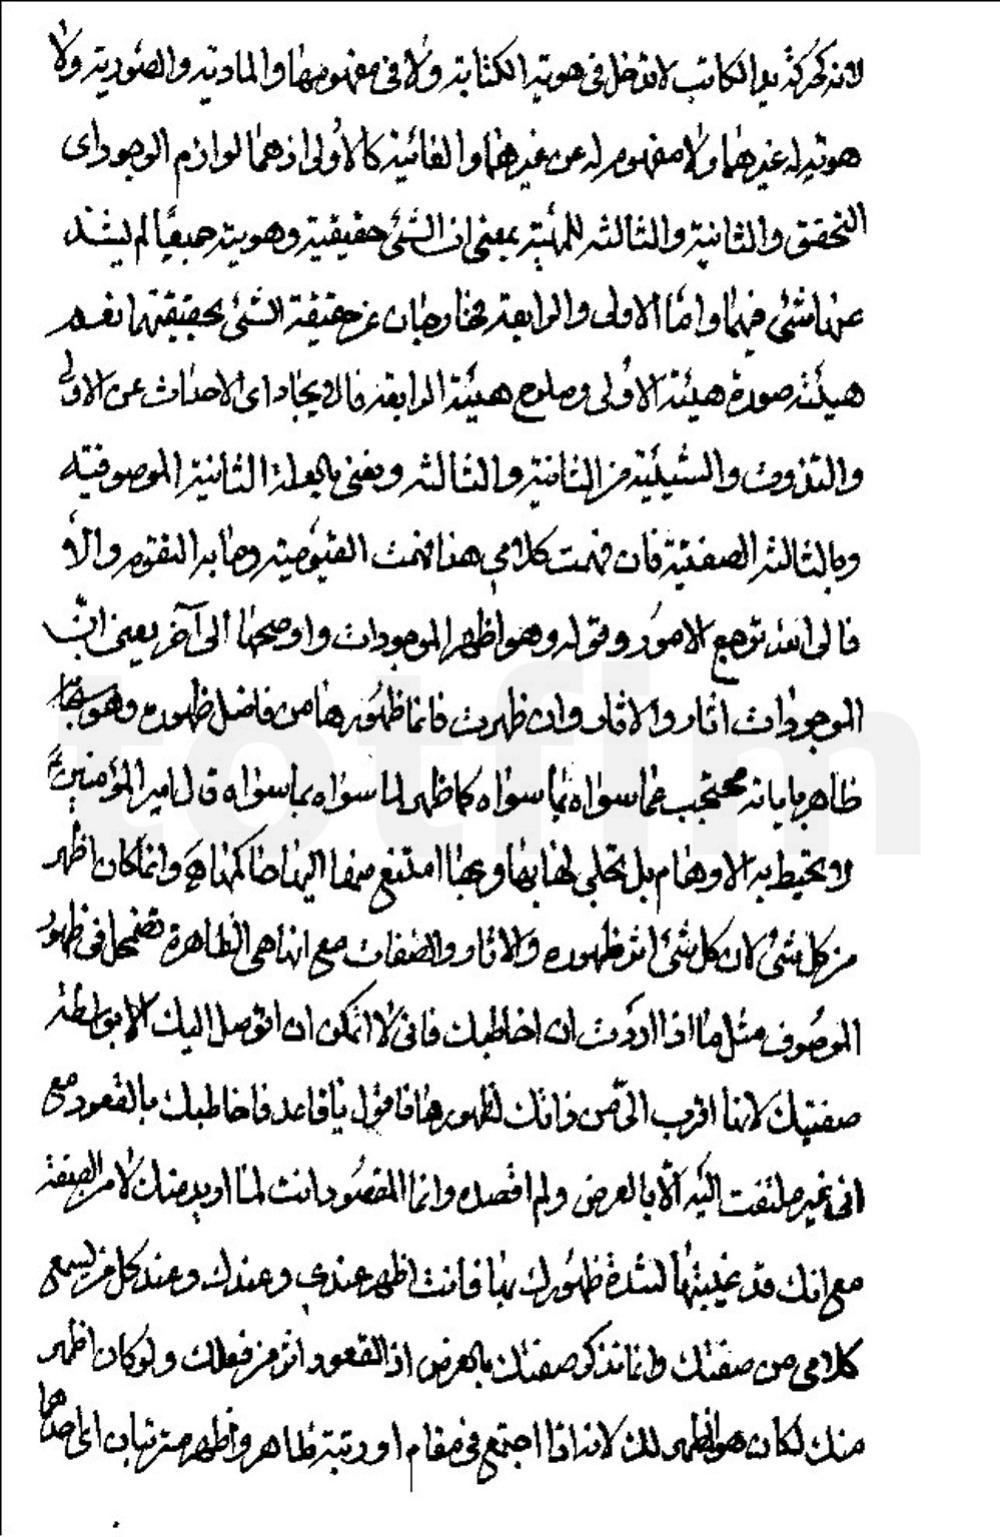 لانه كحركة يد الكاتب لا تدخل فى هوية الكتابة ولا فى مفهومها والمادية والصورية ولا
هوية له غيرهما ولا مفهوم له عن غيرهما والغائية كالاولى اذ هما لوازم الوجود اى
التحقق والثانية والثالثة للمهية بمعنى ان الشئ حقيقية وهوية جميعا لم يشذ
عنها شئ فيهما واما الاولى والرابعة خارجان عن حقيقة الشئ بحقيقتها نعم
هيئة صورة هيئة الاولى وصلوح هيئة الرابعة فالايجاد اى الاحداث عن الاولى
والتذوت والشيئية من الثانية والثالثة ونعنى بالعلة الثانية الموصوفية
وبالثالثة الصفتية فان فهمت كلامى هذا فهمت القيومية وما به التقوم والا
فالى الله ترجع الامور وقوله وهو اظهر الموجودات واوضحها الى آخر يعنى انّ
الموجودات اثار والاثار وان ظهرت فانما ظهورها من فاضل ظهوره وهو سبحانه
ظاهر باياته محتجب عما سواه بما سواه كما ظهر لما سواه بما سواه قال امير المؤمنين ع
لا تحيط به الاوهام بل تجلى لها بها وبها امتنع منها اليها حاكمها وانما كان اظهر
من كل شئ لان كل شئ اثر ظهوره والاثار والصفات مع انها هى الظاهرة تضمحل فى ظهور
الموصوف مثل ما اذا اردت ان اخاطبك فانى لا اتمكن ان اتوصل اليك الا بواسطة
صفتك لانها اقرب الىّ من ذاتك لظهورها فاقول يا قاعد فاخاطبك بالقعود مع
انى غير ملتفت اليه الّا بالعرض ولم اقصده وانما المقصود انت لما اريد منك لا من الصفة
مع انك قد غيبتها لشدة ظهورك بها فانت اظهر عندى وعندك وعند كل من يسمع
كلامى من صفتك وانما تذكر صفتك بالعرض اذ القعود اثر من فعلك ولو كان اظهر
منك لكان هو اظهر لك لانه اذا اجتمع فى مقام او رتبة ظاهر واظهر مترتبان الى احدهما